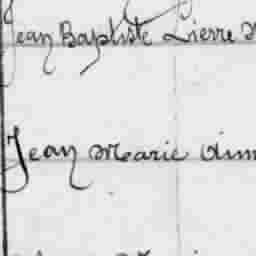 Jean Baptiste Pierre
Jean Marie Aim